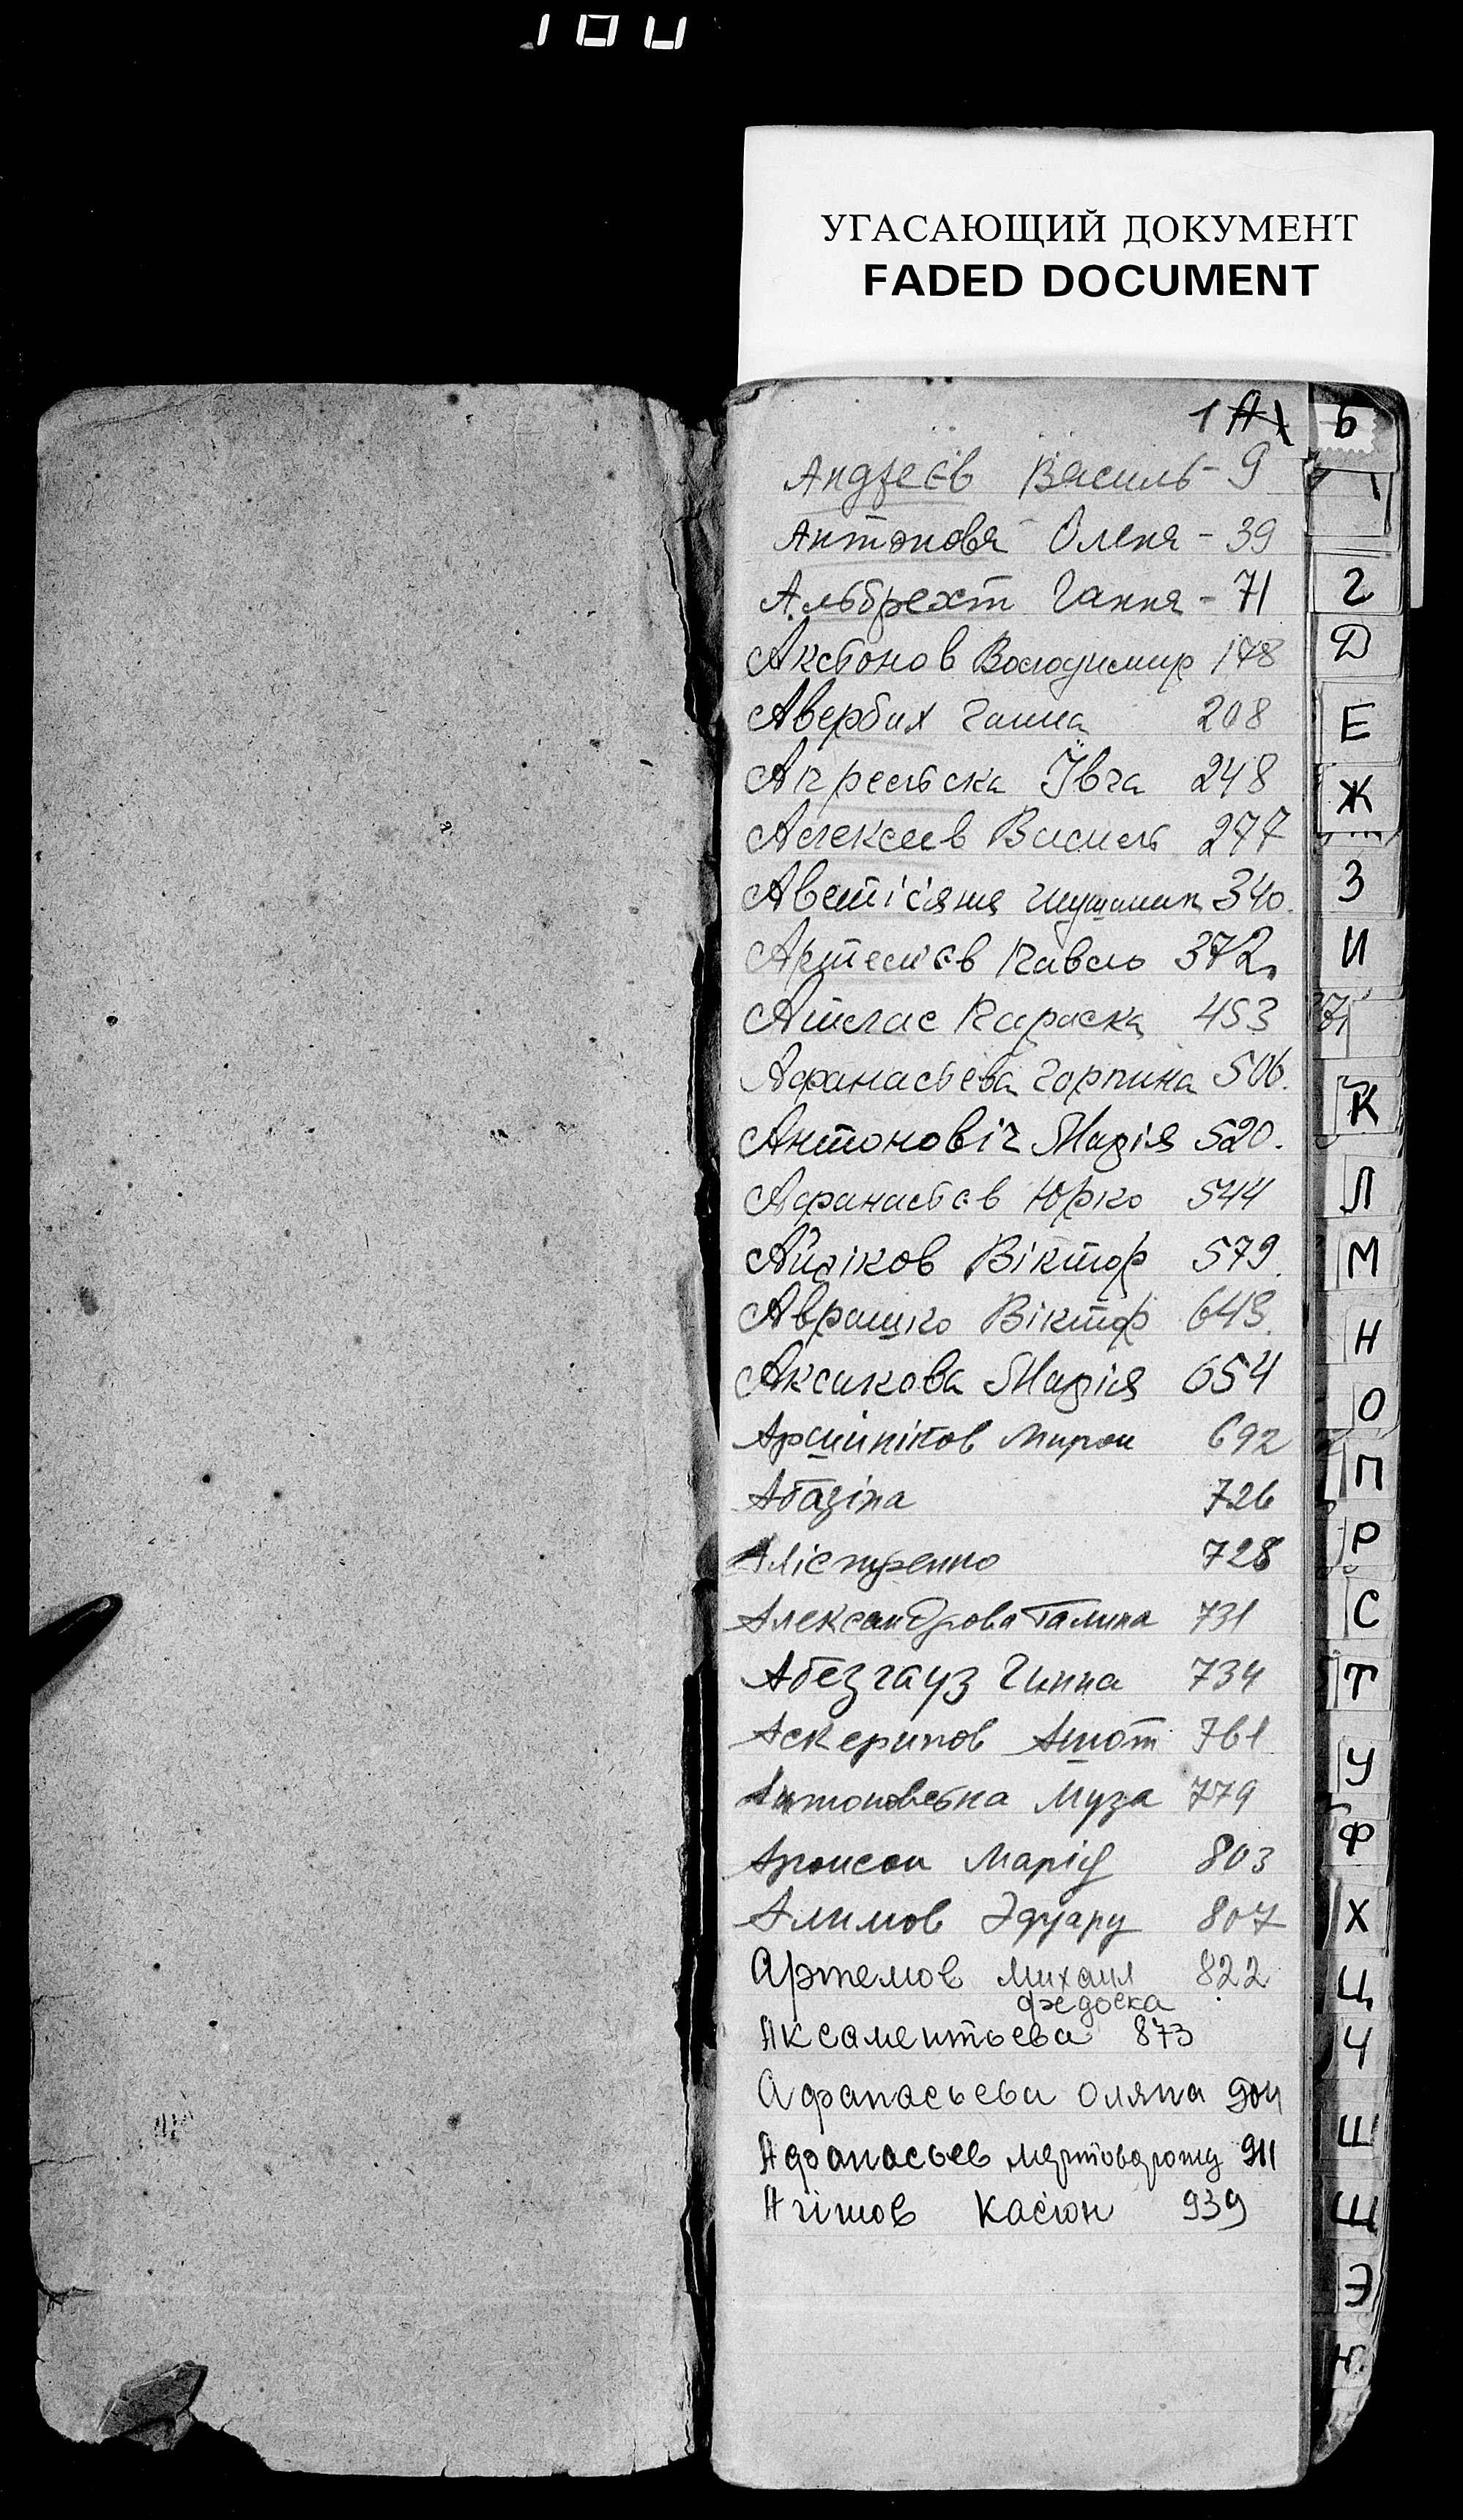 УГАСАЮЩИЙ ДОКУМЕНТ
FADED DOCUMENT
1 А
Андреєв Василь - 9
Антонова Олена - 39
Альбрехт Ганна - 71
Аксьонов Володимир 178
Авербах Ганна 208
Апрельска Ївга 248
Алексеев Василь 277
Аветісяня Шушаник 340.
Артем'єв Павло 372.
Атлас Параска 453
Афанасьєва Горпина 506.
Антоновіч Марія 520.
Афанасьєв Юрко 544
Віктор 579.
Аврашко Віктор 643.
Аксакова Марія 654
Мирон 692
Абазіна 726
728
Александрова Галина 731
Абезгауз Ганна 734
Аскеринов Ашот 761
Муза 779
Аронсон Марія 803
Алимов Эдуард 807
Артемов Михаил 822
федоска
Аксаментьева 873
Афанасьева Оляна 904
Афанасьев 911
939
Б
Г
Д
Е
Ж
З
И
К
Л
М
Н
О
П
Р
С
Т
У
Ф
Х
Ц
Ч
Ш
Щ
Э
Ю